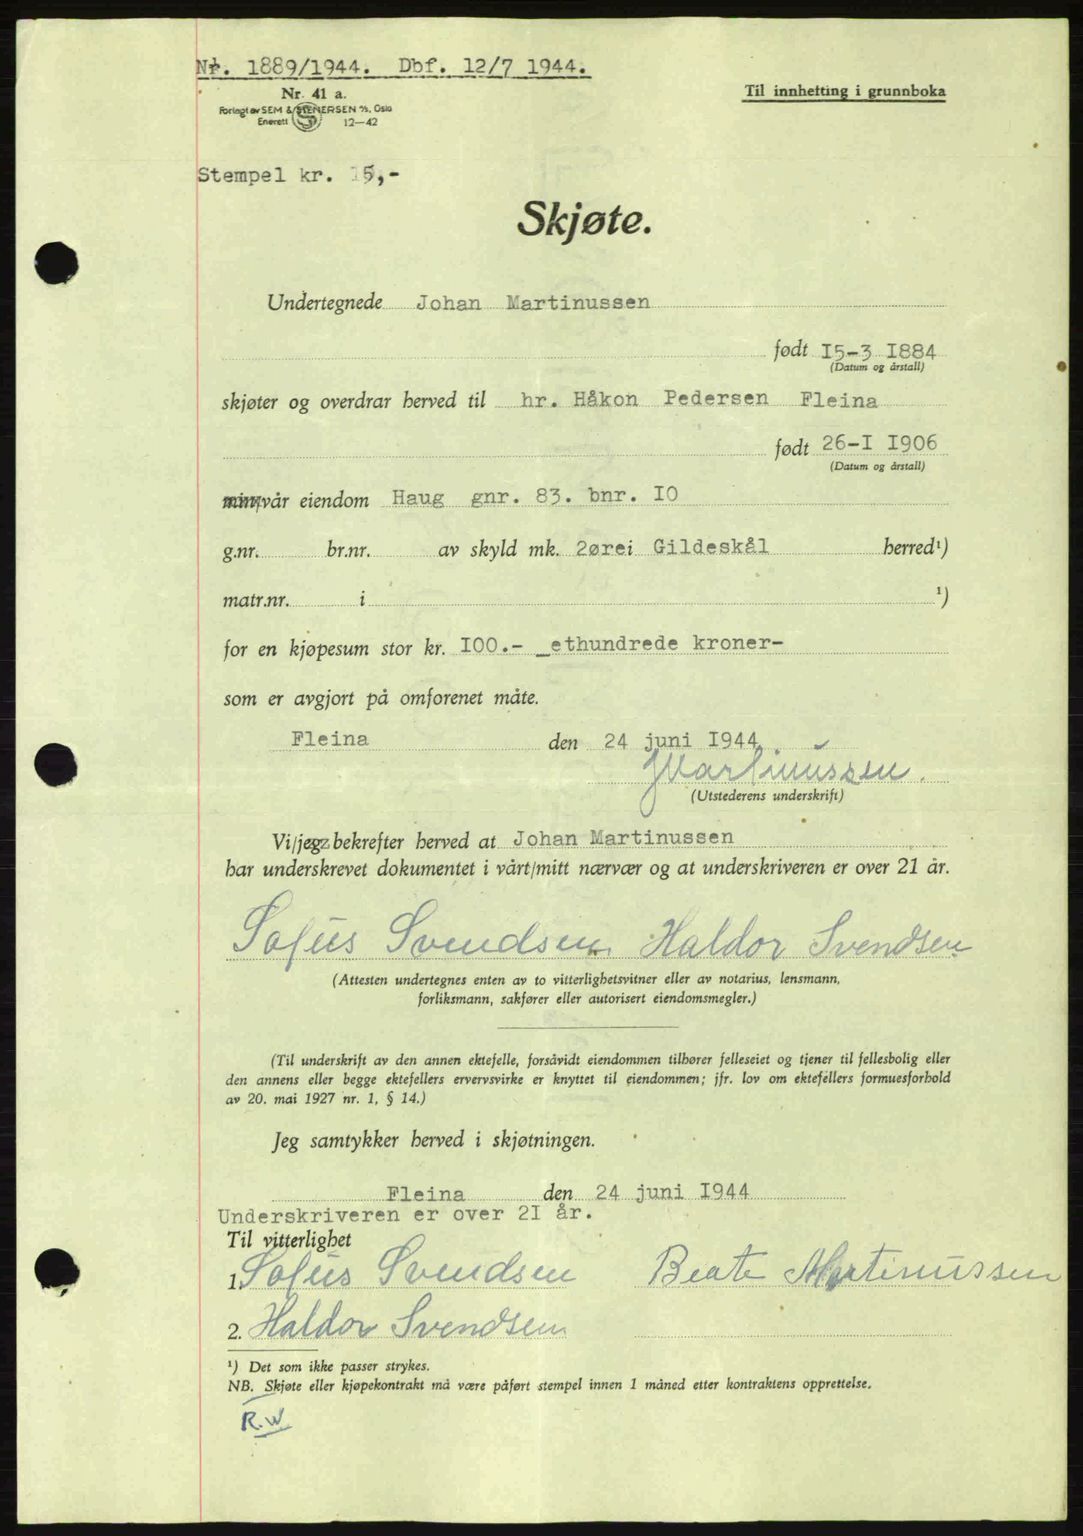 Nr. 1889/1944. Dbf. 12/7 1944.
Nr. 41 a.
Forlagt av SEM & STENERSEN A/S, Oslo
Enerett 12—42
Til innhetting i grunnboka
Stempel kr. 15,-
Skjøte.
Undertegnede Johan Martinussen
født I5-3 I884
(Datum og årstall)
skjøter og overdrar herved til hr. Håkon Pedersen Fleina
født 26-I I906
(Datum og årstall)
min/vår eiendom Haug gnr. 83. bnr. IO
g.nr. br.nr. av skyld mk. 2ørei Gildeskål herred¹)
matr.nr. i ¹)
for en kjøpesum stor kr. IOO.- _ethundrede kroner-
som er avgjort på omforenet måte.
Fleina den 24 juni I944
JMartinussen.
(Utstederens underskrift)
Vi/jeg bekrefter herved at Johan Martinussen
har underskrevet dokumentet i vårt/mitt nærvær og at underskriveren er over 21 år.
Sofus Svendsen Haldor Svendsen
(Attesten undertegnes enten av to vitterlighetsvitner eller av notarius, lensmann,
forliksmann, sakfører eller autorisert eiendomsmegler.)
(Til underskrift av den annen ektefelle, forsåvidt eiendommen tilhører felleseiet og tjener til fellesbolig eller
den annens eller begge ektefellers ervervsvirke er knyttet til eiendommen; jfr. lov om ektefellers formuesforhold
av 20. mai 1927 nr. 1, § 14.)
Jeg samtykker herved i skjøtningen.
Fleina den 24 juni I944
Underskriveren er over 2I år.
Til vitterlighet
1. Sofus Svendsen Beate Martinussen
2. Haldor Svendsen
¹) Det som ikke passer strykes.
NB. Skjøte eller kjøpekontrakt må være påført stempel innen 1 måned etter kontraktens opprettelse.
R.W